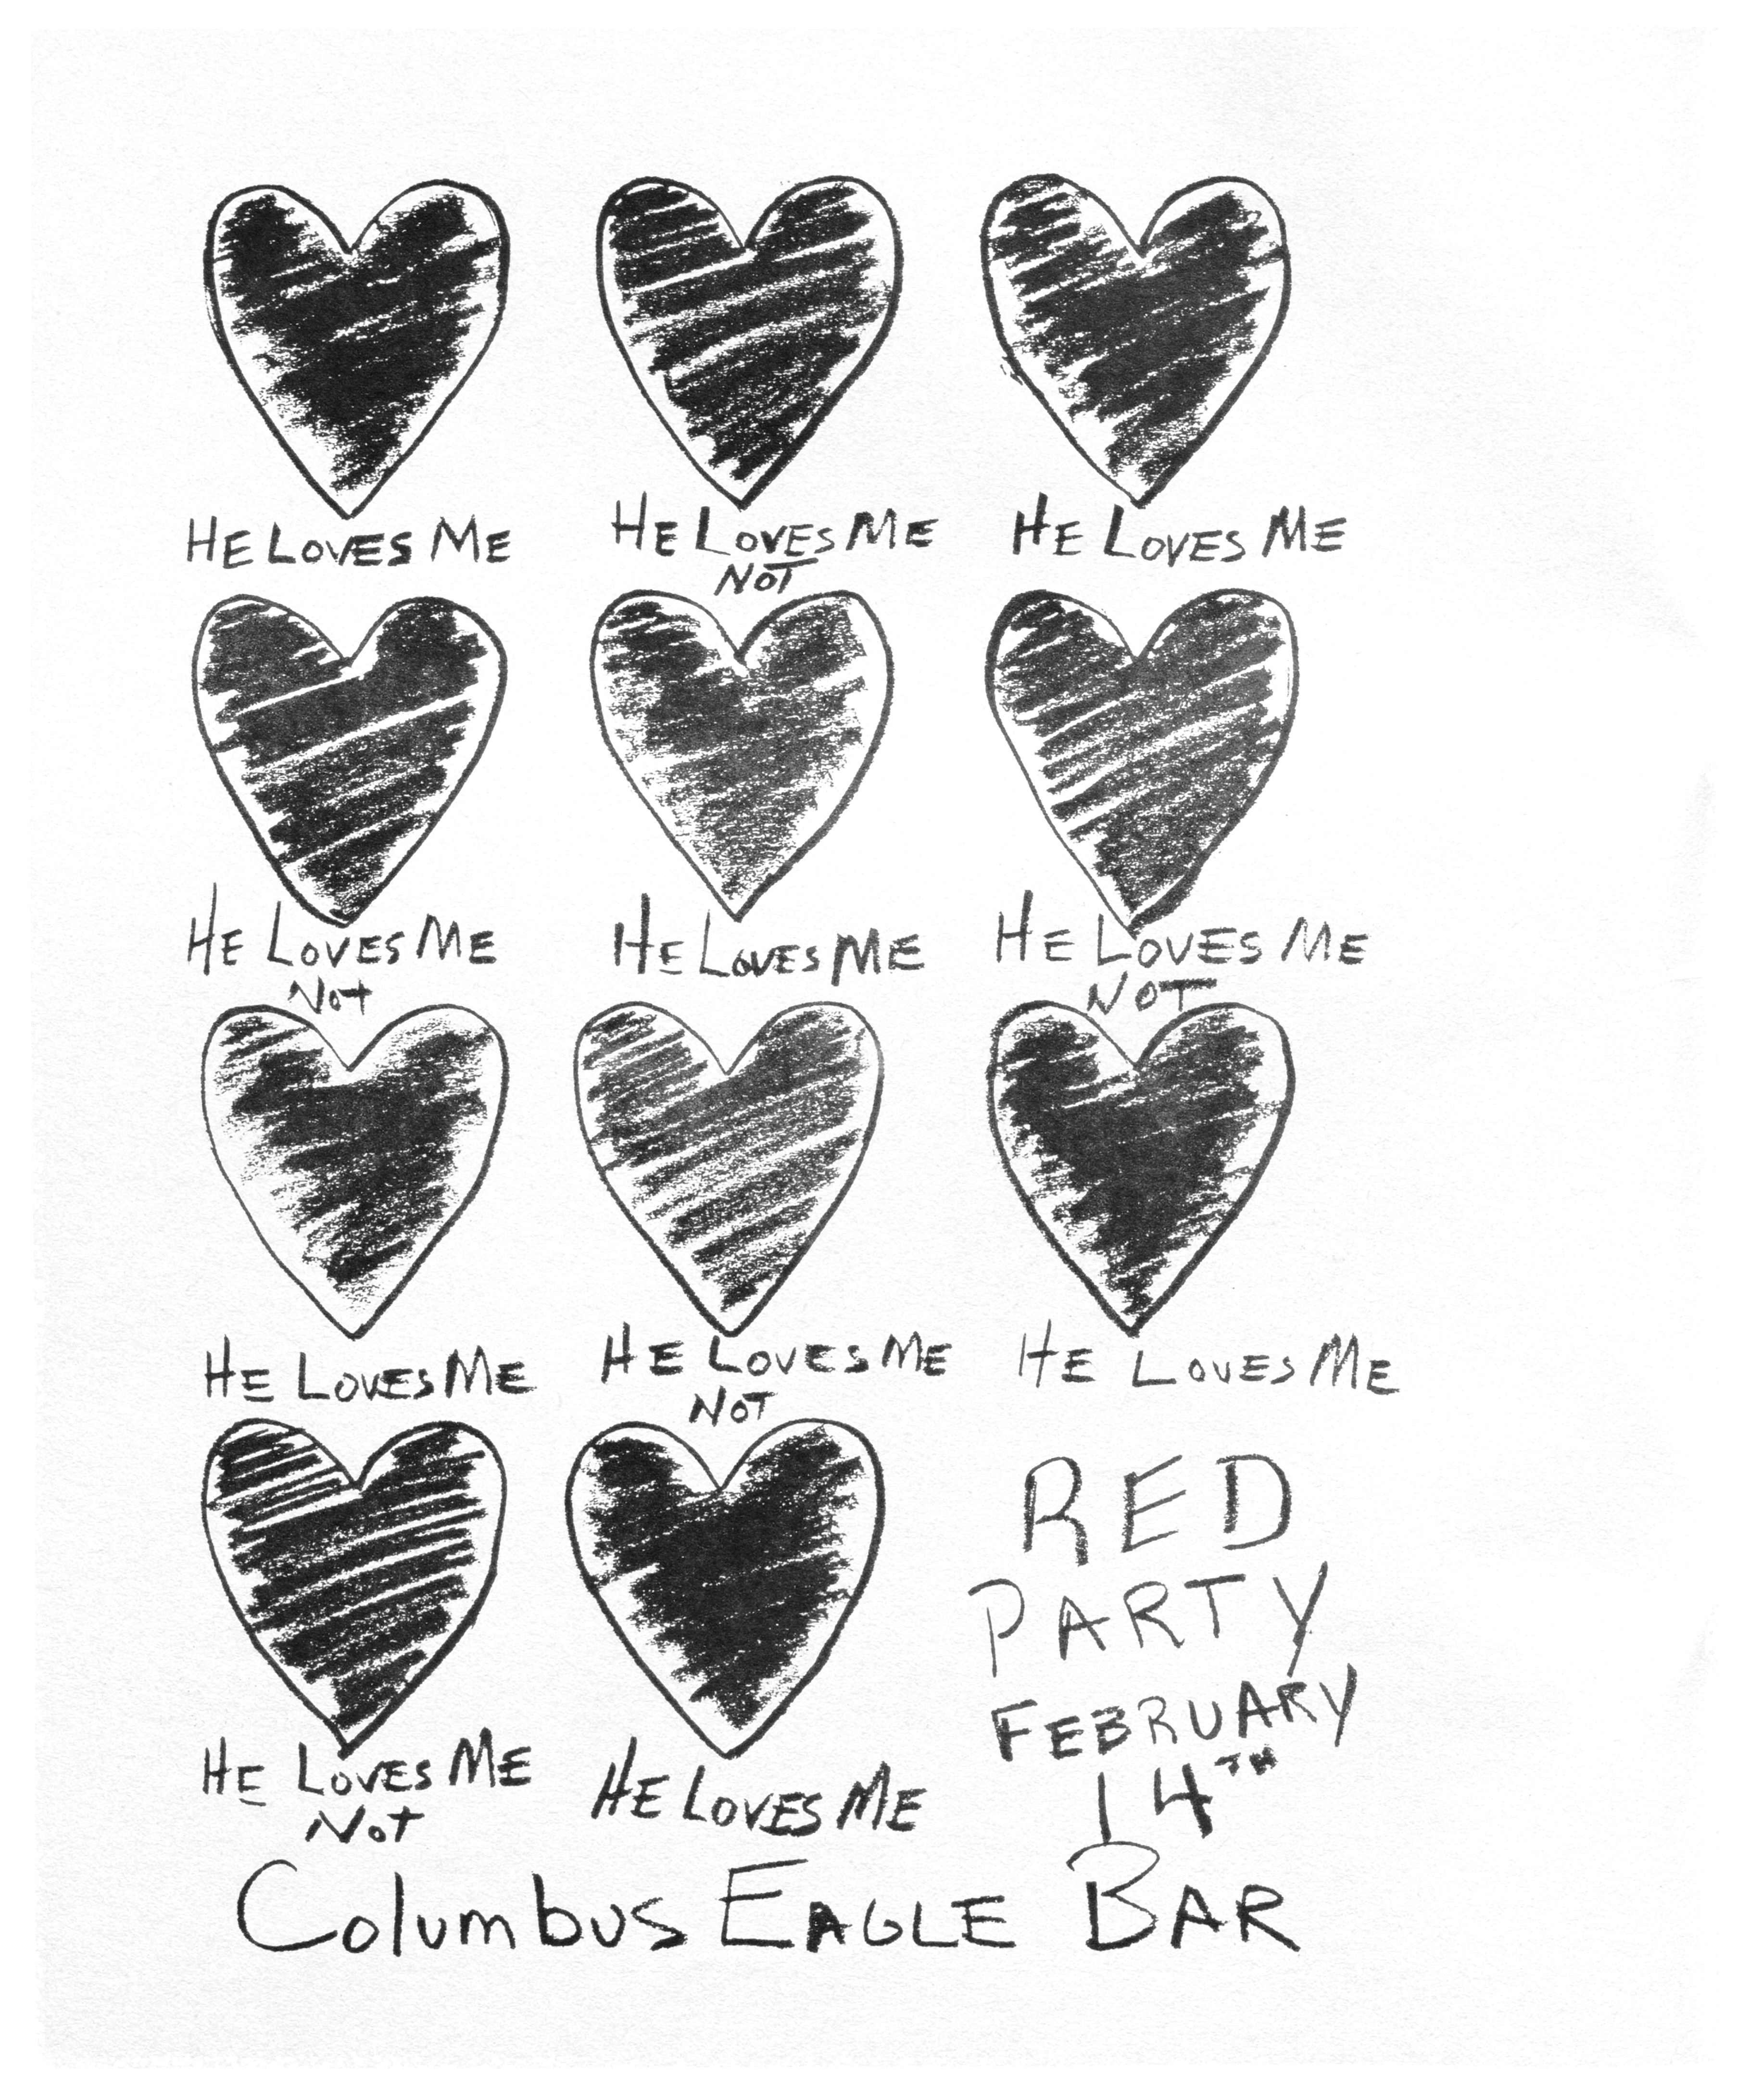 HE LOVES ME
HE LOVES ME
NOT
HE LOVES ME
HE LOVES ME
Not
HE LOVES ME
HE LOVES ME
NOT
HE LOVES ME
HE LOVES ME
NOT
HE LOVES ME
HE LOVES ME
Not
HE LOVES ME
RED
PARTY
FEBRUARY
14TH
Columbus EAGLE BAR